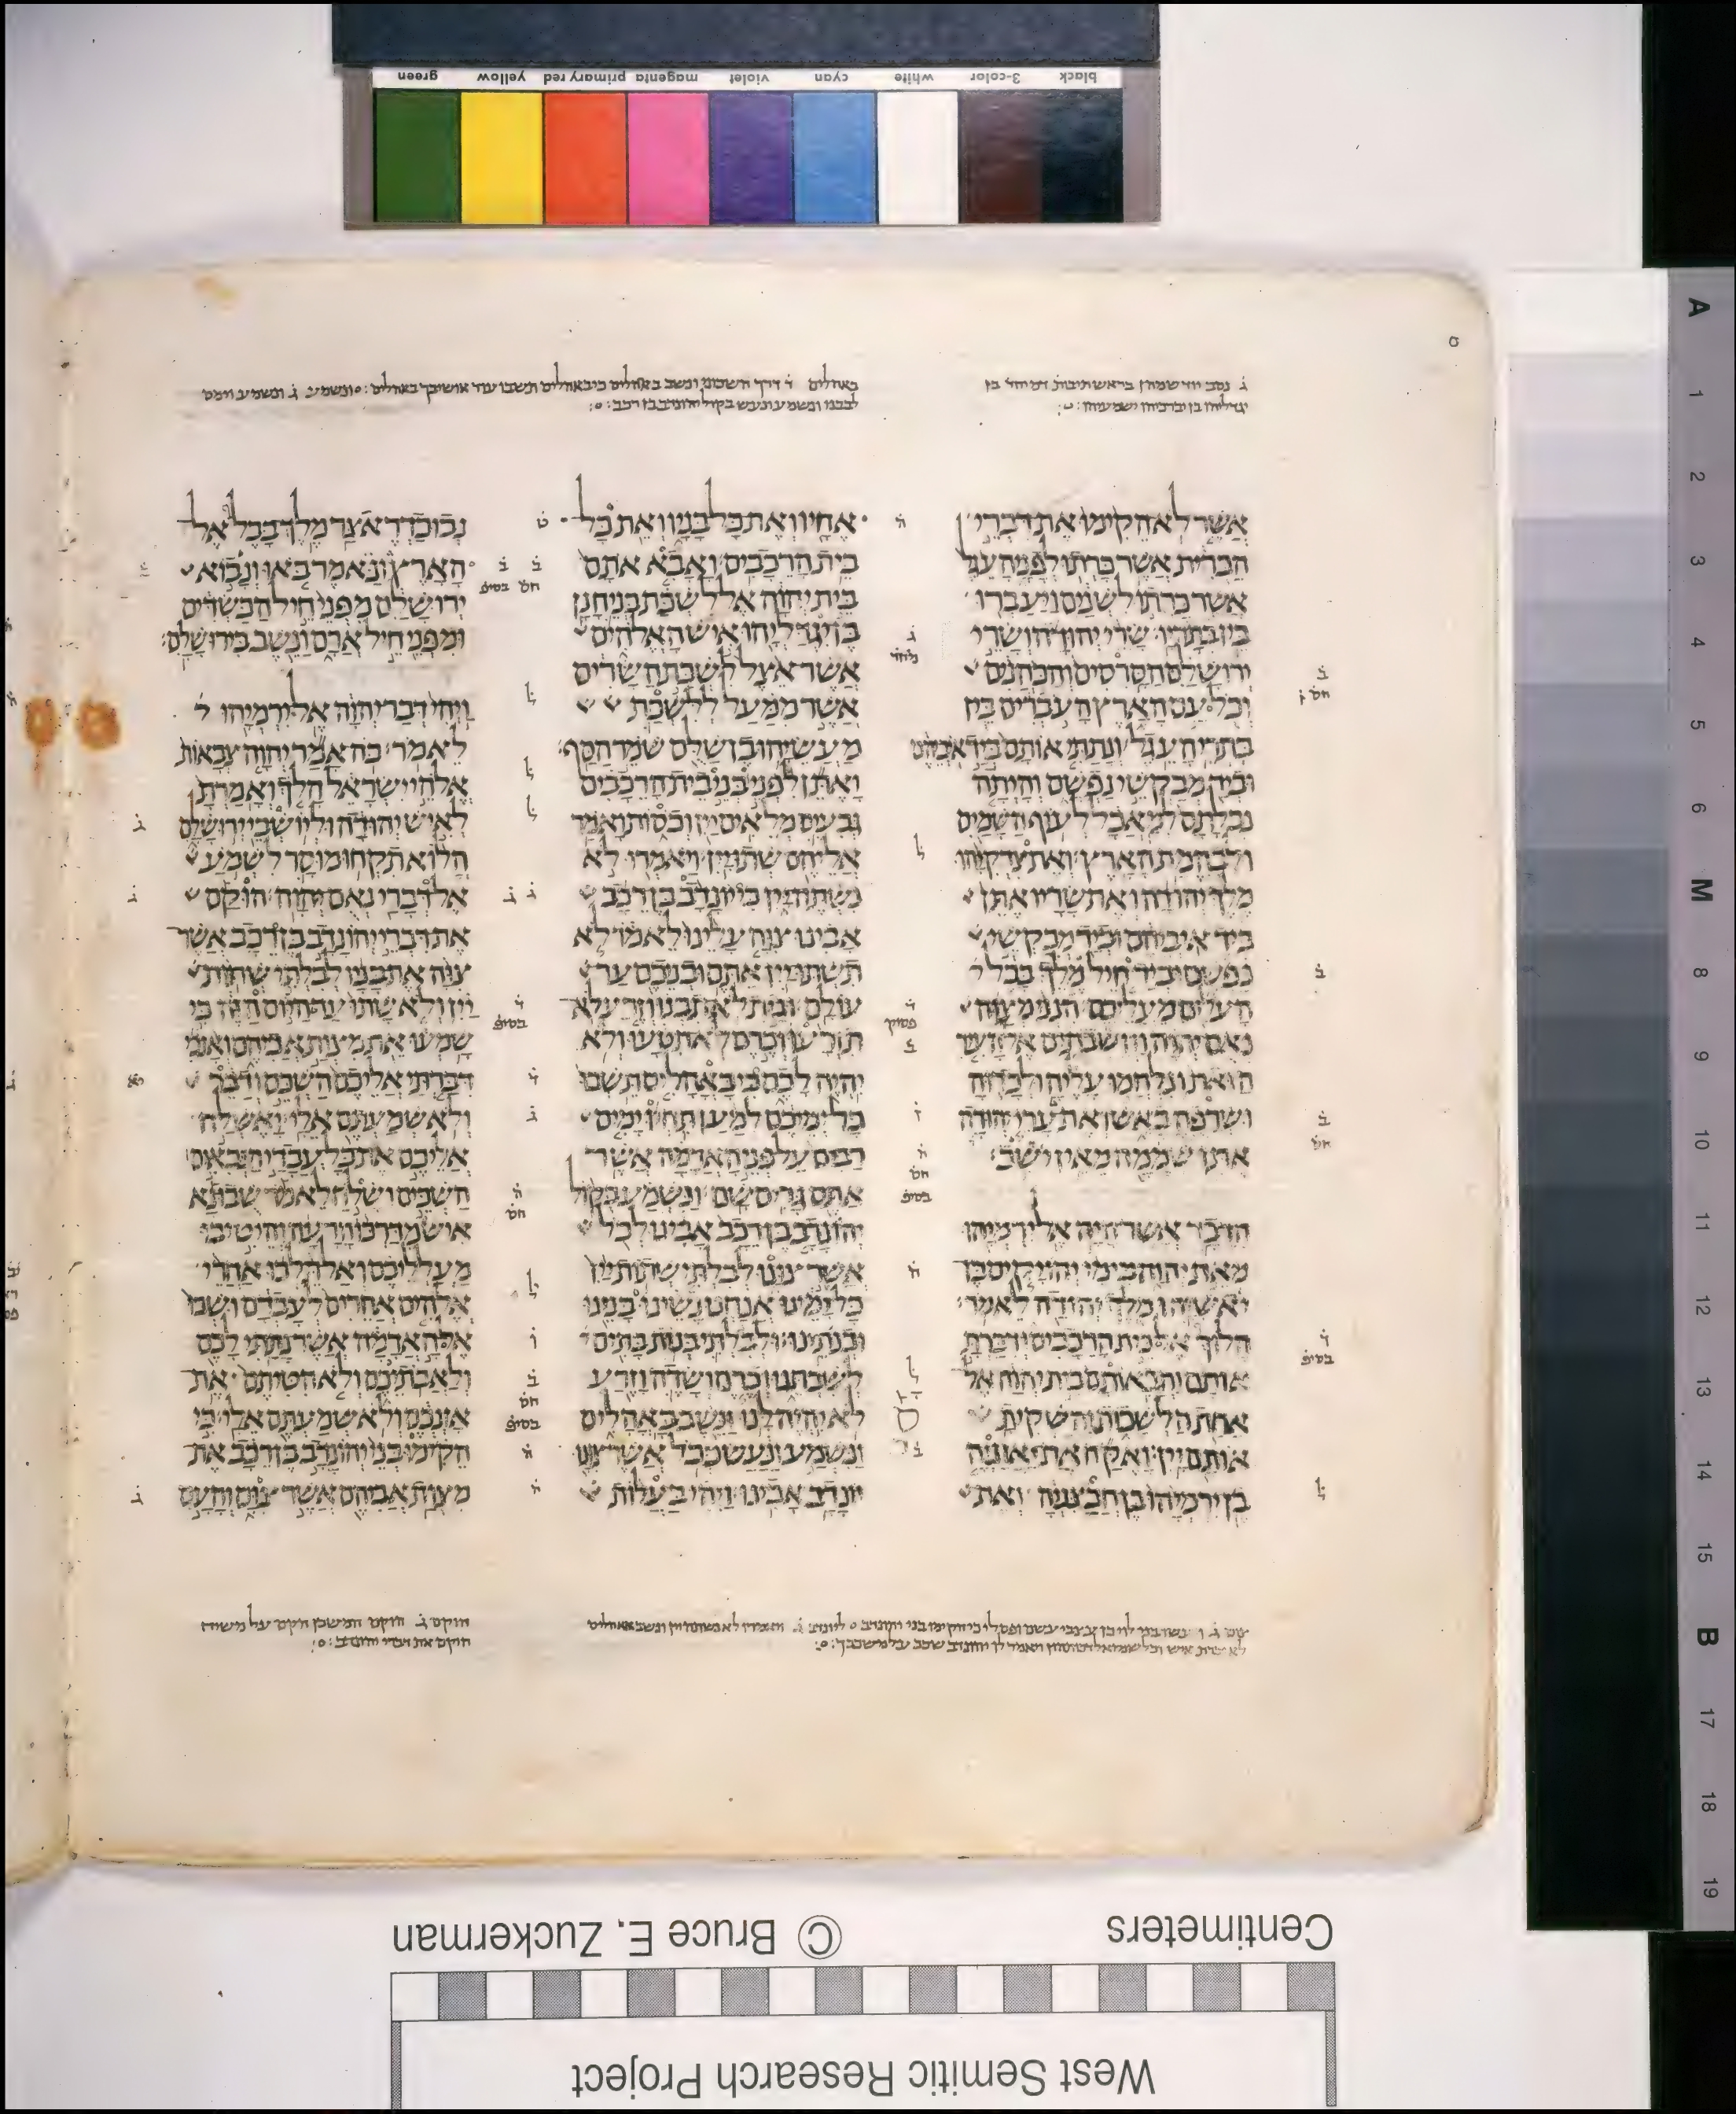 green yellow primary red magenta violet cyan white 3-color black
באהלים ד דרך השכוני ונשב באהלים כי באהלים תשבו עוד אושיבך באהלים ונשמע ג ונשמע וימס
לבבנו ונשמע ונעש בקול יהונדב בן רכב
יגדליהו בן יברכיהו ישמעיהו
אשר לא הקימו את דברי
הברית אשר כרתו לפני העגל
אשר כרתו לשנים ויעברו
בין בתריו שרי יהודה ושרי
ירושלם הסרסים והכהנים
וכל עם הארץ העברים בין
בתרי העגל ונתתי אותם ביד איביהם
וביד מבקשי נפשם והיתה
נבלתם למאכל לעוף השמים
ולבהמת הארץ ואת צדקיהו
מלך יהודה ואת שריו אתן
ביד איביהם וביד מבקשי
נפשם וביד חיל מלך בבל
העלים מעליכם הנני מצוה
נאם יהוה והשבתים אל העיר
הזאת ונלחמו עליה ולכדוה
ושרפה באש ואת ערי יהודה
אתן שממה מאין ישב
הדבר אשר היה אל ירמיהו
מאת יהוה בימי יהויקים בן
יאשיהו מלך יהודה לאמר
הלוך אל בית הרכבים ודברת
אותם והבאותם בית יהוה אל
אחת הלשכות והשקית
אותם יין ואקח את יאזניה
בן ירמיהו בן חבצניה ואת
אחיו ואת כל בניו ואת כל
בית הרכבים ואבא אתם
בית יהוה אל לשכת בני חנן
בן יגדליהו איש האלהים
אשר אצל לשכת השרים
אשר ממעל ללשכת
מעשיהו בן שלם שמר הסף
ואתן לפני בני בית הרכבים
גבעים מלאים יין וכסות ואמר
אליהם שתו יין ויאמרו לא
נשתה יין כי יונדב בן רכב
אבינו צוה עלינו לאמר לא
תשתו יין אתם ובניכם עד
עולם ובית לא תבנו וזרע לא
תזרעו וכרם לא תטעו ולא
יהיה לכם כי באהלים תשבו
כל ימיכם למען תחיו ימים
רבים על פני האדמה אשר
אתם גרים שם ונשמע בקול
יהונדב בן רכב אבינו לכל
אשר צונו לבלתי שתות יין
כל ימינו אנחנו נשינו בנינו
ובנתינו ולבלתי בנות בתים
לשבתנו וכרם ושדה וזרע
לא יהיה לנו ונשב באהלים
ונשמע ונעש ככל אשר צונו
יונדב אבינו ויהי בעלות
נבוכדראצר מלך בבל אל
הארץ ונאמר באו ונבוא
ירושלם מפני חיל הכשדים
ומפני חיל ארם ונשב בירושלם
ויהי דבר יהוה אל ירמיהו
לאמר כה אמר יהוה צבאות
אלהי ישראל הלך ואמרת
לאיש יהודה וליושבי ירושלם
הלוא תקחו מוסר לשמע
אל דברי נאם יהוה הוקם
את דברי יהונדב בן רכב אשר
צוה את בניו לבלתי שתות
יין ולא שתו עד היום הזה כי
שמעו את מצות אביהם ואנכי
דברתי אליכם השכם ודבר
ולא שמעתם אלי ואשלח
אליכם את כל עבדי הנבאים
השכים ושלח לאמר שבו נא
איש מדרכו הרעה והיטיבו
מעלליכם ואל תלכו אחרי
אלהים אחרים לעבדם ושבו
אל האדמה אשר נתתי לכם
ולאבתיכם ולא הטיתם את
אזנכם ולא שמעתם אלי כי
הקימו בני יהונדב בן רכב את
מצות אביהם אשר צום והעם
הוקם ג הוקם המשכן הקם על משיח
הוקם את דברי יהונדב
© Bruce E. Zuckerman
Centimeters
West Semitic Research Project
A
1
2
3
4
5
6
M
8
9
10
11
12
13
14
15
B
17
18
19